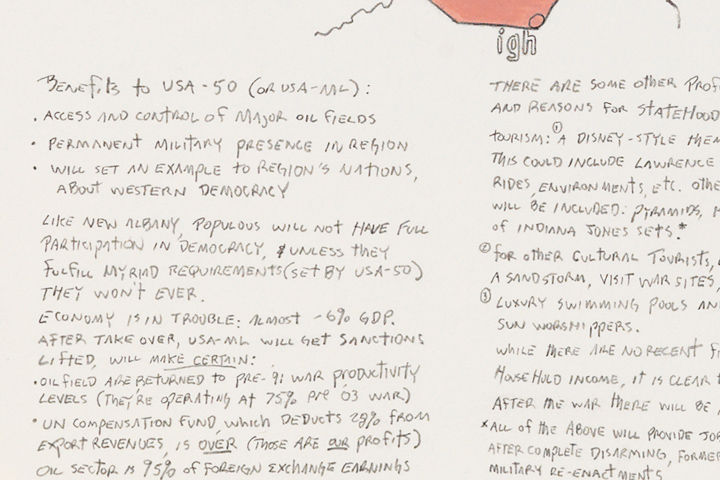 igh
Benefits to USA-50 (or USA-ML):
. ACCESS AND CONTROL of MAJOR OIL FIELDS
• PERMANENT MILITARY PRESENCE IN REGION
• WILL SET AN EXAMPLE to REGION'S NATIONS,
ABOUT WESTERN DEMOCRACY
LIKE NEW ALBANY, POPULOUS WILL NOT HAVE FULL
PARTICIPATION IN DEMOCRACY, UNLESS THEY
FULFILL MYRIAD REQUIREMENTS (SET BY USA-50)
THEY WON'T EVER.
ECONOMY IS IN TROUBLE: ALMOST -6% GDP.
AFTER TAKE OVER, USA-ML WILL GET SANCTIONS
LIFTED, WILL MAKE CERTAIN:
• OIL FIELD ARE RETURNED to PRE-91 WAR PRODUCTIVITY
LEVELS (THEY'RE OPERATING AT 75% PRE 03 WAR)
• UN COMPENSATION FUND, which DEDUCTS 28% FROM
EXPORT REVENUES, IS OVER (THOSE ARE OUR PROFITS)
OIL SECTOR IS 95% of FOREIGN EXCHANGE EARNINGS
THERE ARE SOME OTHER PROF
AND REASONS FOR STATEHOOD
tourism: ① A DISNEY-STYLE THEM
THIS COULD INCLUDE LAWRENCE
RIDES, ENVIRONMENTS, ETC. OTHE
WILL BE INCLUDED: PYRAMIDS,
of INDIANA JONES SETS.*
② FOR OTHER CULTURAL TOURISTS,
A SANDSTORM, VISIT WAR SITES,
③ LUXURY SWIMMING POOLS AN
SUN WORSHIPPERS.
WHILE THERE ARE NO RECENT FI
HOUSEHOLD INCOME, IT IS CLEAR T
AFTER THE WAR THERE WILL BE
*ALL of THE ABOVE WILL PROVIDE JOB
AFTER COMPLETE DISARMING, FORMER
MILITARY RE-ENACTMENTS